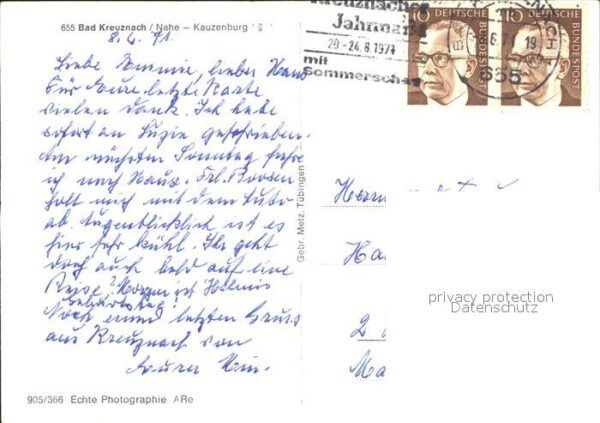 655 Bad Kreuznach / Nahe – Kauzenburg
8.6.71.
Liebe Emmie, lieber Hans
Für Eure letzte Karte
vielen Dank. Ich habe
sofort an Luzie geschrieben.
Am nächsten Sonntag fahre
ich nach Haus. Frl. Boosen
holt mich mit dem Auto
ab. Augenblicklich ist es
hier sehr kühl. Ihr geht
doch auch bald auf eine
Reise? Morgen ist Helmis
Geburtstag!
Noch einen letzten Gruss
aus Kreuznach von
Eurer
905/366 Echte Photographie ARe
Gebr. Metz, Tübingen
Kreuznacher
Jahrmarkt
20.-24.8.1971
mit
Sommerschau
10 DEUTSCHE BUNDESPOST
10 DEUTSCHE BUNDESPOST
655
Herrn
Ha
privacy protection
Datenschutz
2
Ma